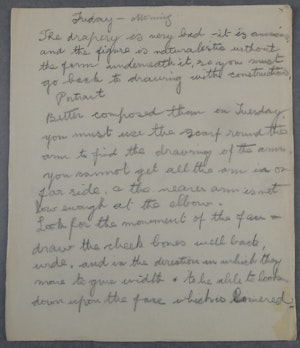 Friday - Morning
The drapery is very bad - it is
and the figure is naturalestic without
the form underneath it, so you must
go back to drawing with construction
Portrait
Better composed than on Tuesday.
you must use the scarf round the
arm to find the drawing of the arm.
you cannot get all the arm in on
far side, & the nearer arm is not
low enough at the elbow.
Look for the movement of the face -
draw the cheek bones well back,
wide, and in the direction in which they
move to give width & to be able to look
down upon the face which is lowered.